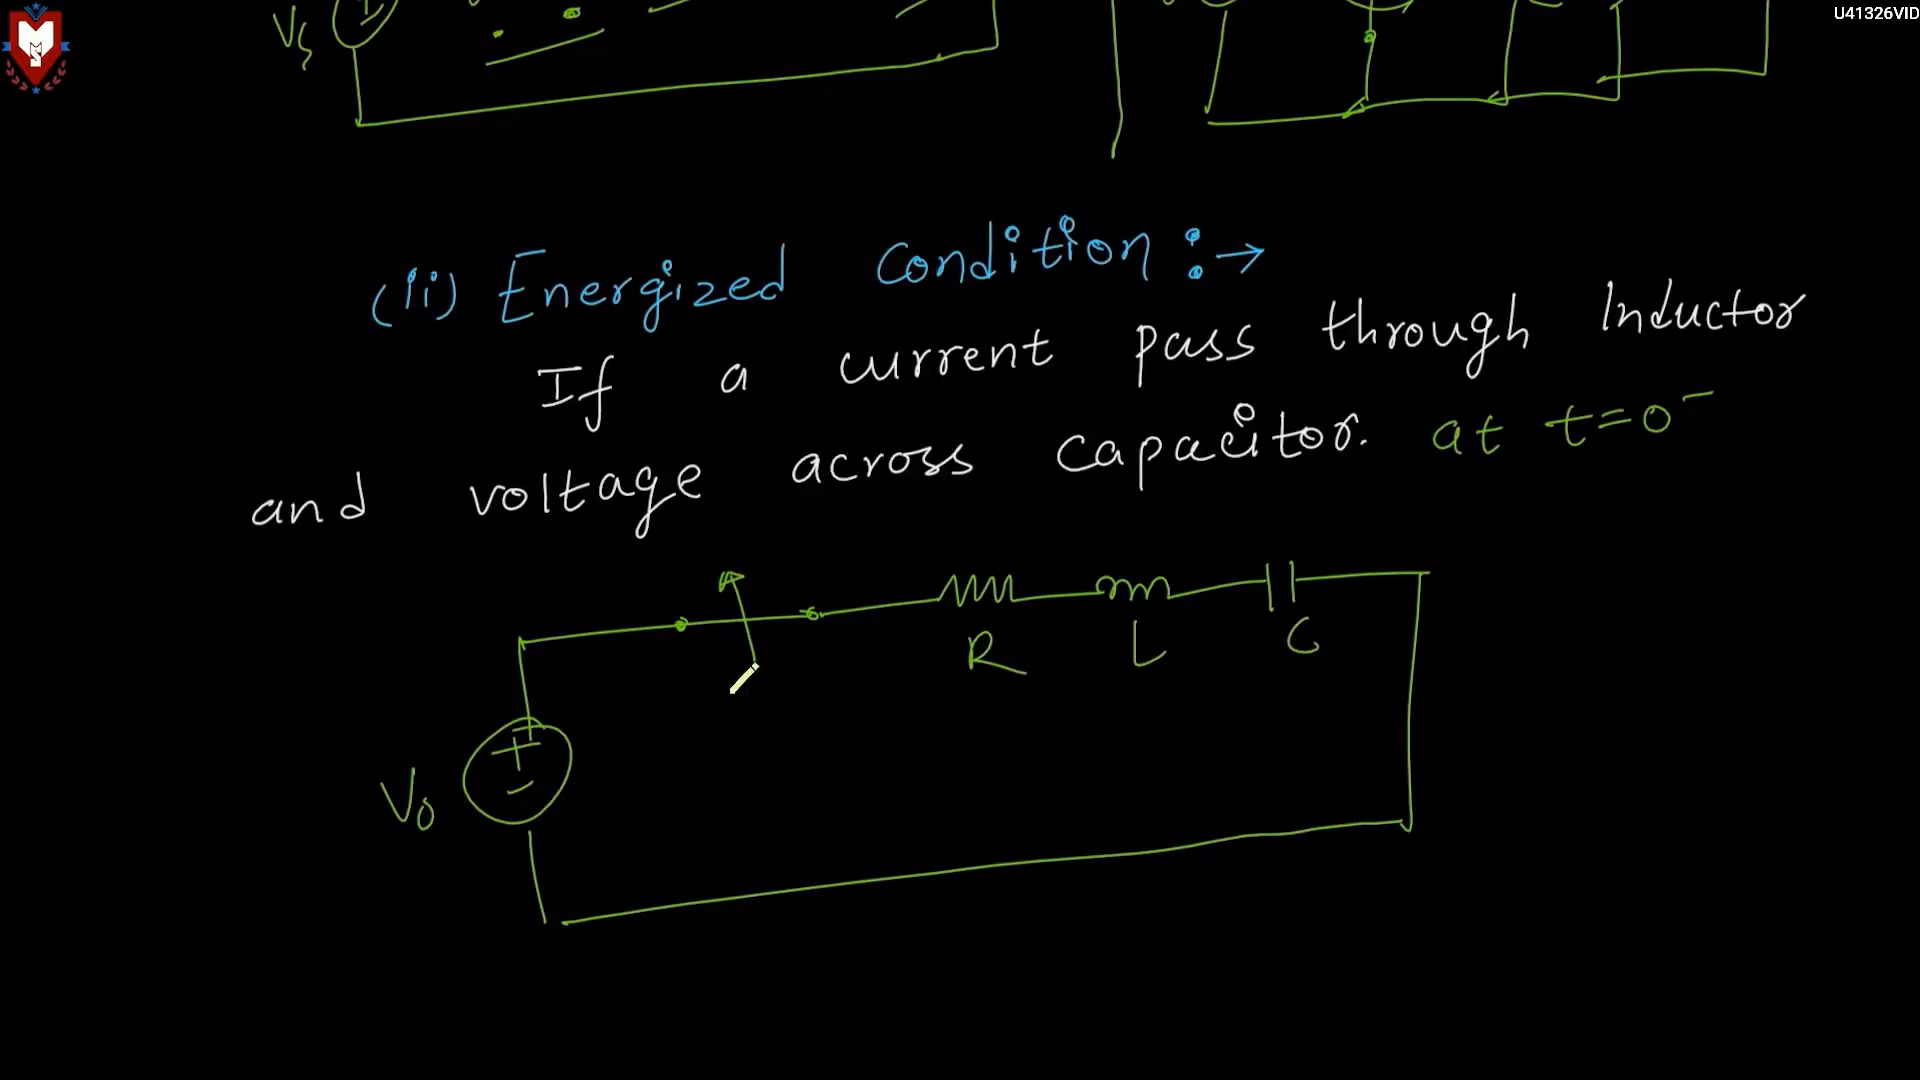 U41326VID
Vs
(ii) Energized Condition :→
If a current pass through Inductor
and voltage across capacitor. at t=0⁻
R L C
V0